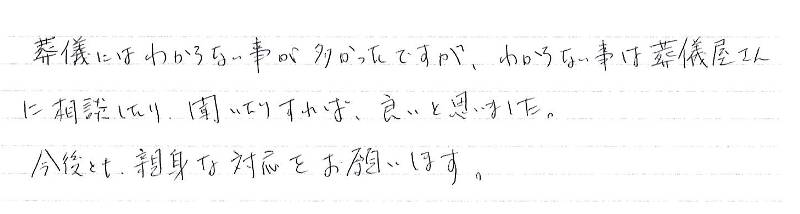 葬儀にはわからない事が多かったですが、わからない事は葬儀屋さん
に相談したり、聞いたりすれば、良いと思いました。
今後とも、親身な対応をお願いします。